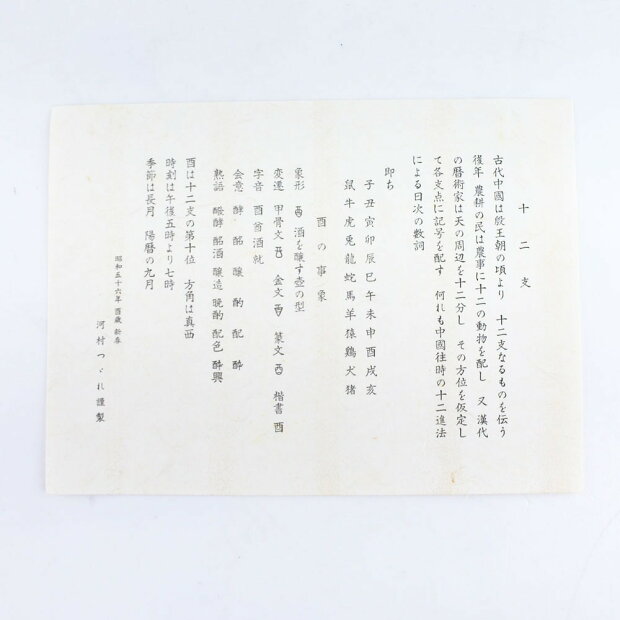 十二支
古代中國は殷王朝の頃より　十二支なるものを伝う
後年　農耕の民は農事に十二の動物を配し　又　漢代
の暦術家は天の周辺を十二分し　その方位を仮定し
て各支点に記号を配す　何れも中國往時の十二進法
による日次の数詞
即ち
子丑寅卯辰巳午未申酉戌亥
鼠牛虎兎龍蛇馬羊猿鶏犬猪
酉の事象
象形　酒を醸す壺の型
変遷　甲骨文　金文　篆文　楷書　酉
字音　酉酋酒就
会意　酵　酩　醸　酌　配　酔
熟語　醗酵　酩酒　醸造　晩酌　配色　酔興
酉は十二支の第十位　方角は真西
時刻は午後五時より七時
季節は長月　陽暦の九月
昭和五十六年　酉歳　新春
河村つゞれ謹製